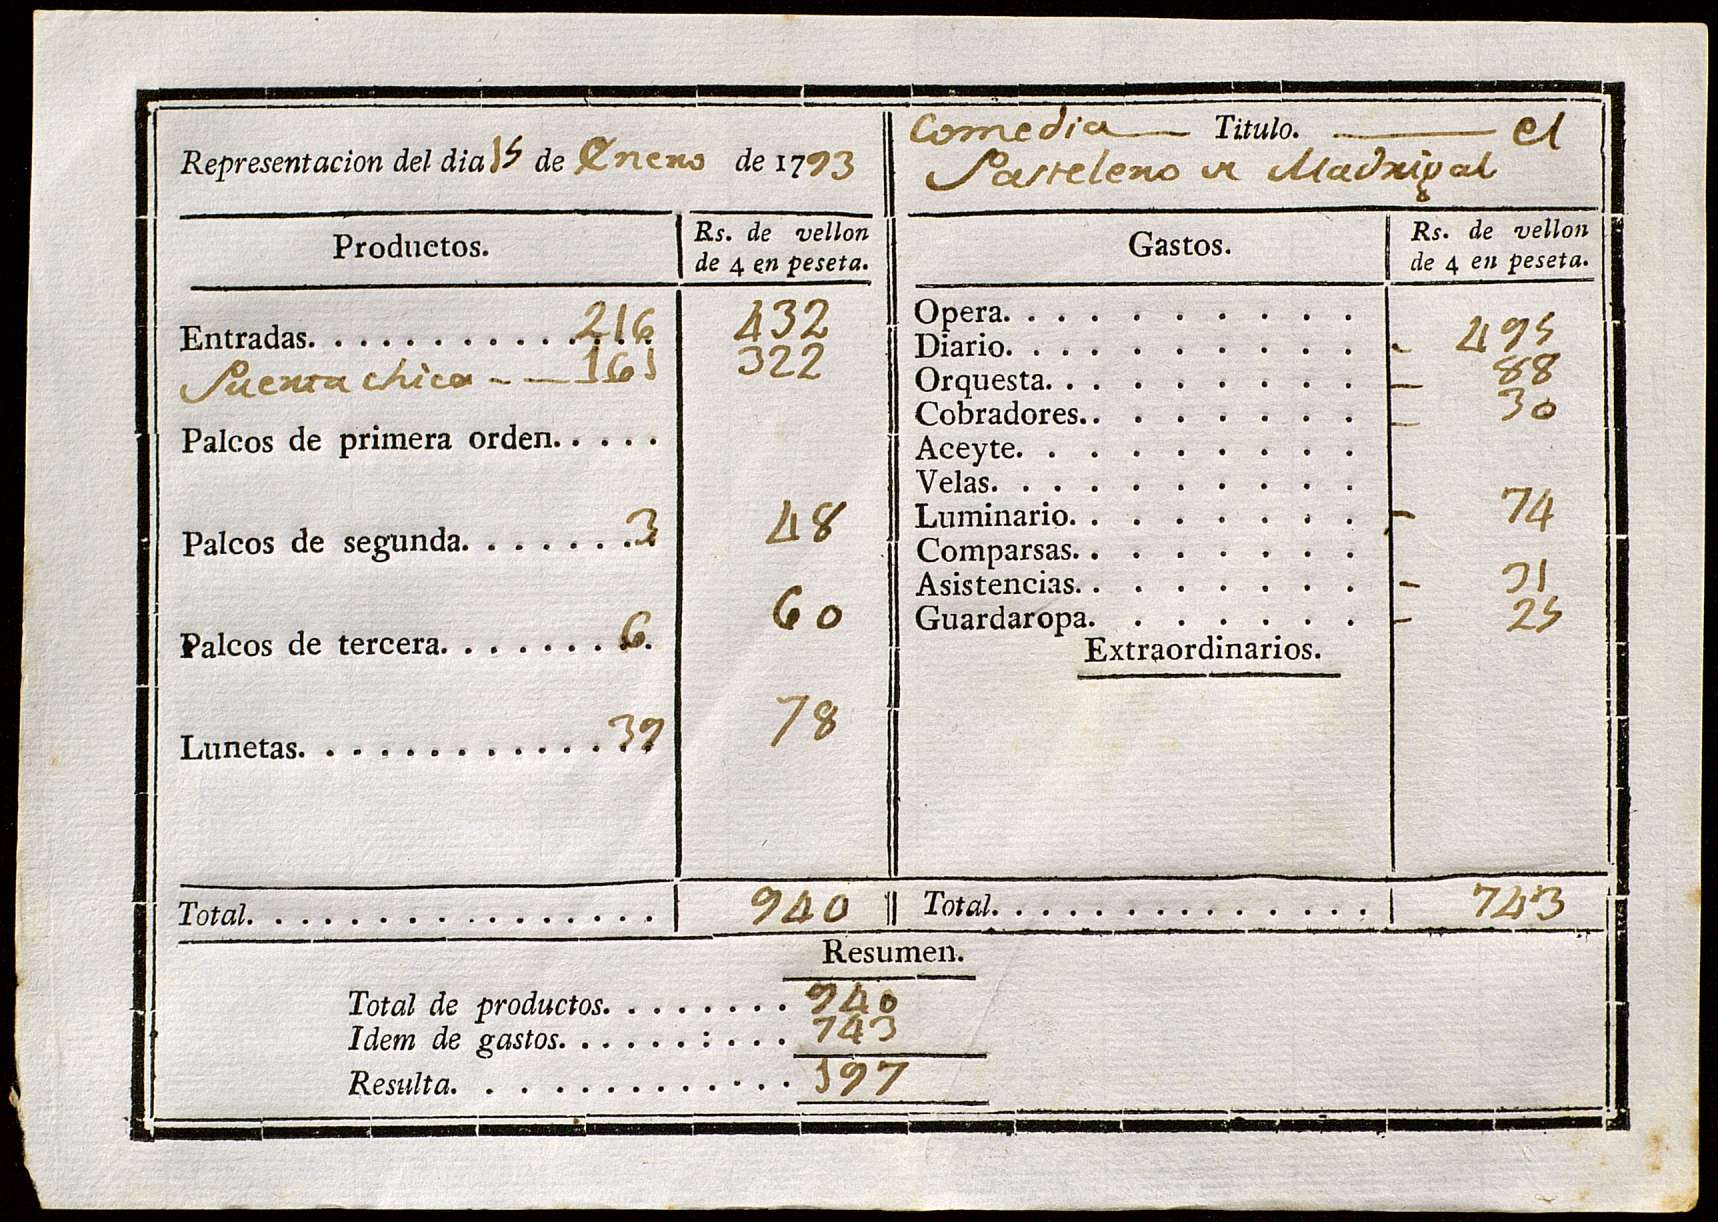 Representacion del dia 15 de Enero de 1793
Productos.
Rs. de vellon
de 4 en peseta.
Entradas. . . . . . . . . . . . . 216 432
Puerta chica - - 161 322
Palcos de primera orden. . . . .
Palcos de segunda. . . . . . . . 3 48
Palcos de tercera. . . . . . . . . 6 60
Lunetas. . . . . . . . . . . . . . 39 78
Total. . . . . . . . . . . . . . . . 940
Comedia — Titulo. — el
Pastelero de Madrigal
Gastos.
Rs. de vellon
de 4 en peseta.
Opera. . . . . . . . . .
Diario. . . . . . . . . . - 495
Orquesta. . . . . . . . . - 88
Cobradores. . . . . . . . - 30
Aceyte. . . . . . . . . .
Velas. . . . . . . . . . .
Luminario. . . . . . . . - 74
Comparsas. . . . . . . .
Asistencias. . . . . . . . - 31
Guardaropa. . . . . . . - 25
Extraordinarios.
Total. . . . . . . . . . . . . . 743
Resumen.
Total de productos. . . . . . . . 940
Idem de gastos. . . . . . : . . . 743
Resulta. . . . . . . . . . . . . 197